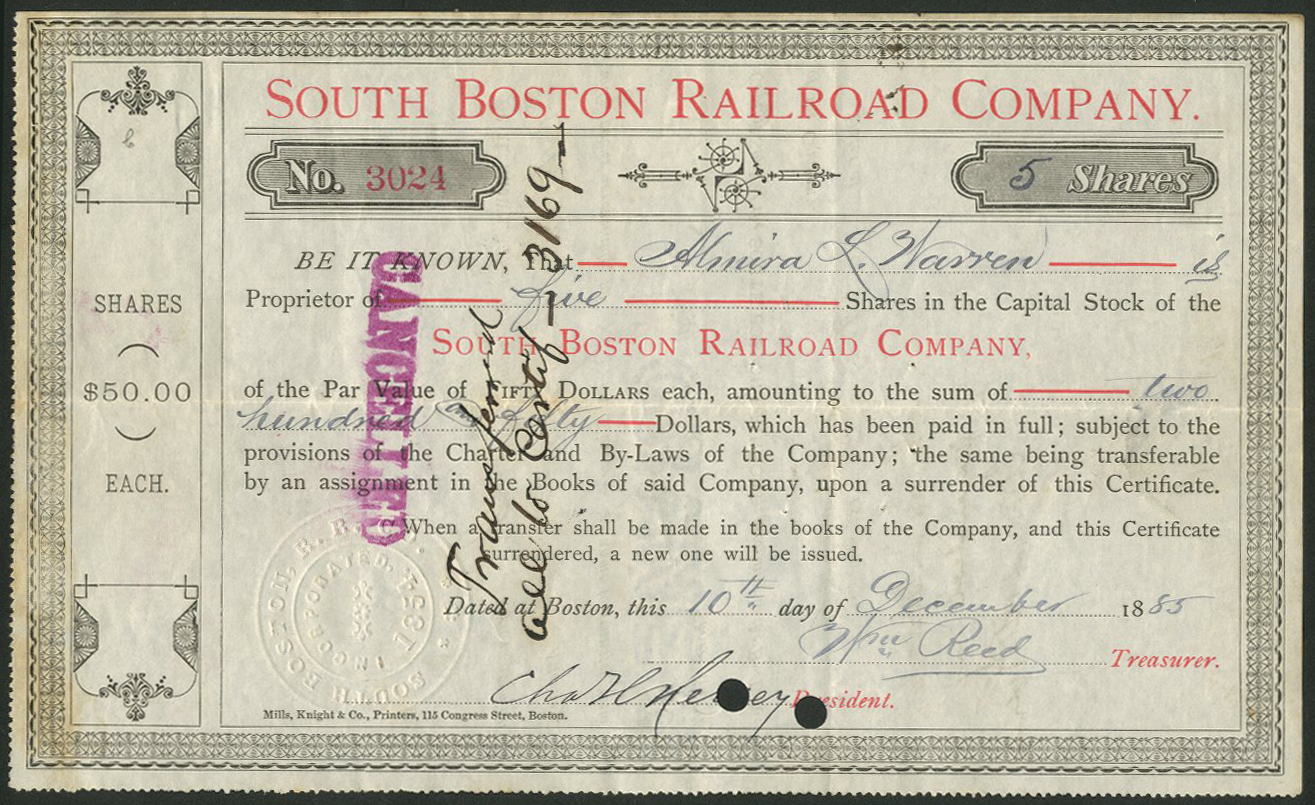 SOUTH BOSTON RAILROAD COMPANY.
No. 3024
5 Shares
BE IT KNOWN, That Almira L. Warren is
Proprietor of five Shares in the Capital Stock of the
SOUTH BOSTON RAILROAD COMPANY,
of the Par Value of FIFTY DOLLARS each, amounting to the sum of two
hundred and fifty Dollars, which has been paid in full; subject to the
provisions of the Charter and By-Laws of the Company; the same being transferable
by an assignment in the Books of said Company, upon a surrender of this Certificate.
When a transfer shall be made in the books of the Company, and this Certificate
surrendered, a new one will be issued.
Dated at Boston, this 10th day of December 1885
Wm Reed Treasurer.
President.
Mills, Knight & Co., Printers, 115 Congress Street, Boston.
SHARES
$50.00
EACH.
CANCELLED
Transferred
all to Certif - 3169 -
SOUTH BOSTON R. R. CO.
INCORPORATED. 1854